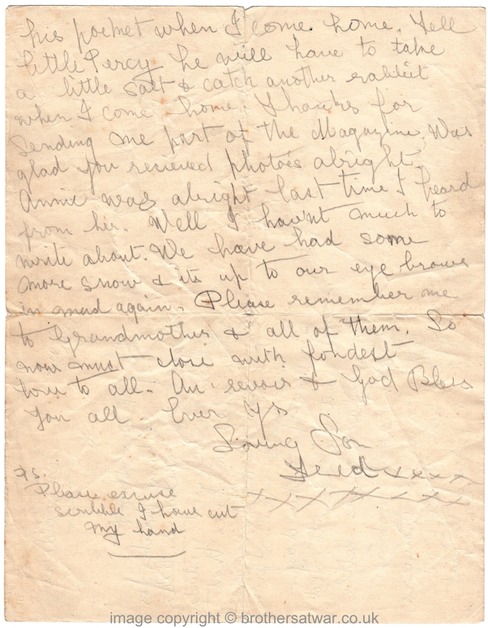 his pocket when I come home. Tell
little Percy he will have to take
a little salt & catch another rabbit
when I come home. Thanks for
sending me part of the Magazine. Was
glad you recieved photoes alright.
Annie was alright last time I heard
from her. Well I hav'nt much to
write about. We have had some
more snow & its up to our eye brows
in mud again. Please remember me
to Grandmother & all of them. So
now must close with fondest
love to all. Au-revoir & God Bless
you all. Ever yrs
Loving Son
xxxx
xxxxxxxxx
P.S.
Please excuse
scribble I have cut
my hand
image copyright © brothersatwar.co.uk